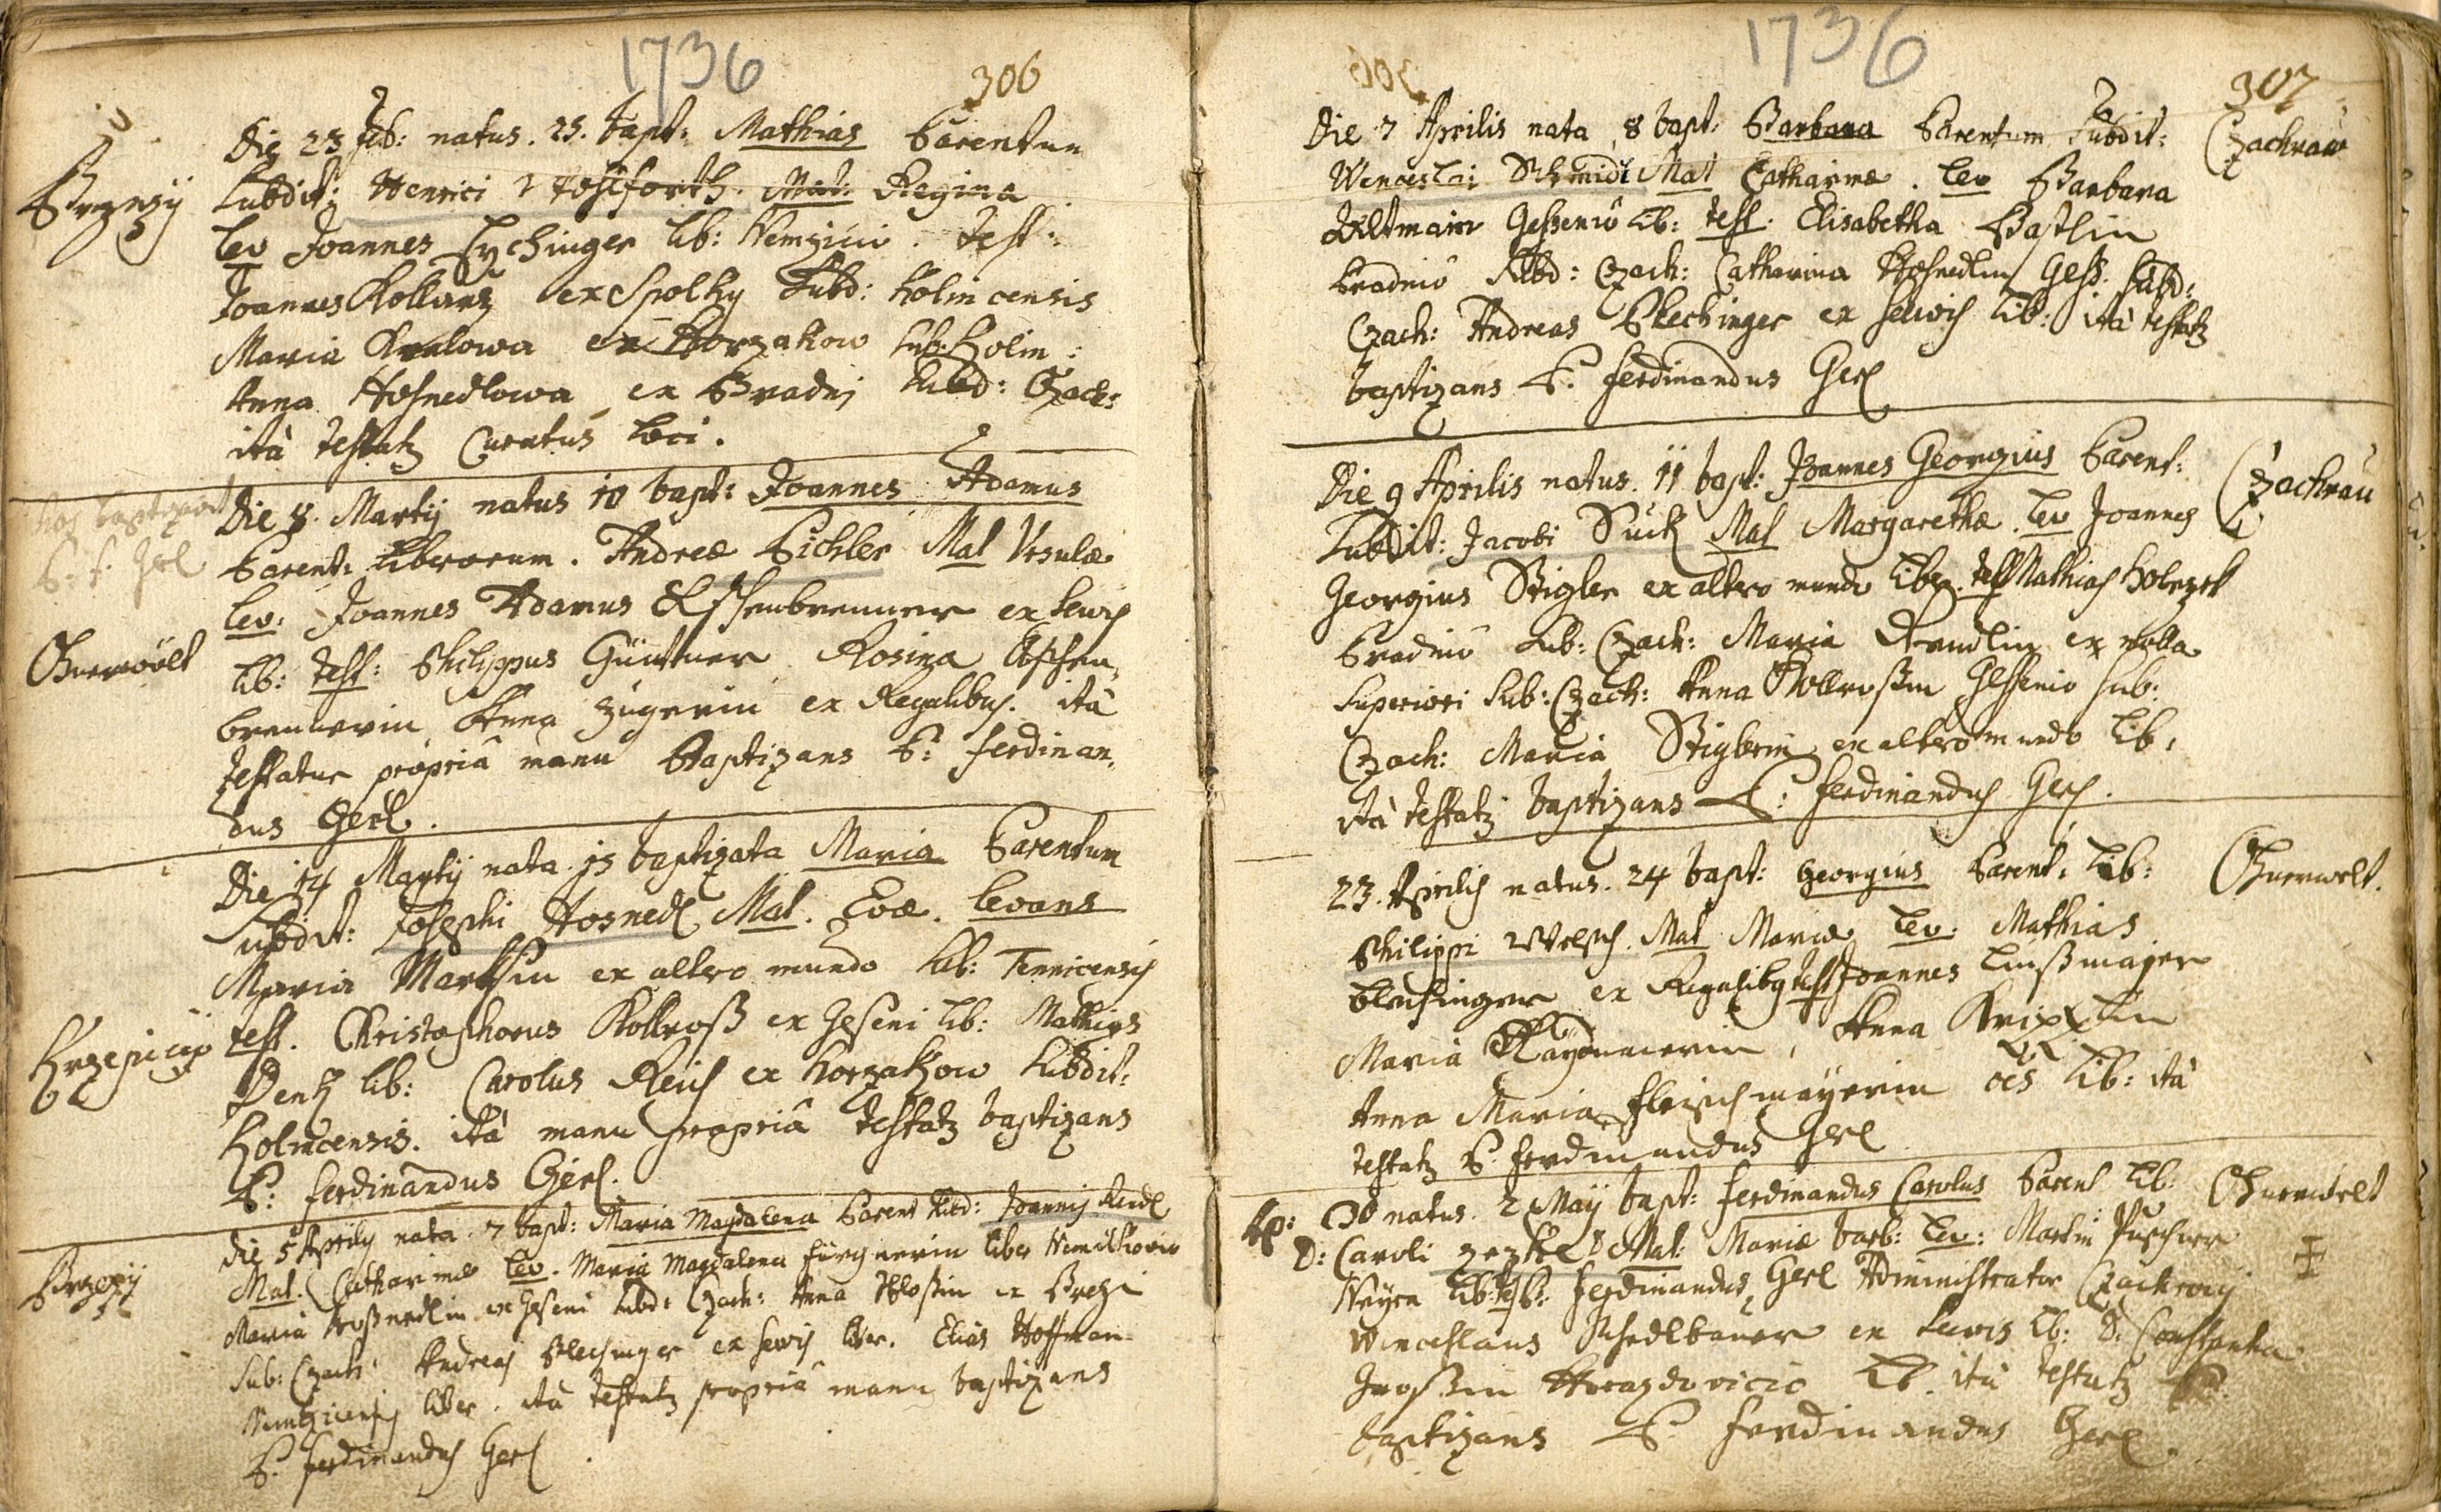 1736
306
Brzezy
Die 23 feb: natus. 25. bapt: Mathias Parentum
Subdit: Henrici Mat: Regina
Lev Joannes Eychinger lib: Nemzicio. Test:
Joannes Kollarz ex Spolky Subd: Kolin censis
Maria Kralowa ex Horzakow Sub: Kolin:
Anna Hosnedlowa ex Bradni Subd: Czach:
ità testatz Curatus loci.
hos baptizavit
P: F: Gerl
Die 8. Martij natus 10 bapt: Joannes Adamus
Parent: liberorum. Andreæ Pichler Mat Ursulæ
Lev: Joannes Adamus ex Sewis
Chumwölt
lib: test: Philippus Güntner Rosina
brennerin Anna Zügerin ex Regalibus. ità
testatur propriâ manu Baptizans P: Ferdinan,
dus Gerl.
Die 14 Martij nata 15 baptizata Maria Parentum
Subdit: Josephi Hosnedl Mat. Evæ. Levans
Maria ex altero mundo lib: Tennicensis
Krzepicij
test. Christophorus Kollroß ex Geseni lib: Mathias
Denk lib: Carolus Reisch ex Horzakow Subdit:
Kolincensis. ità manu propriâ testatz baptizans
P: Ferdinandus Gerl.
Brzezij
Die 5 Aprilis nata 7 bapt: Maria Magdalena Parent Subd: Joannis Rendl
Mat. Catharinæ Lev. Maria Magdalena liber Nemilkovio
Maria Hoßnedlin ex Geseni Subd: Czach: Anna ex Brezi
Sub: Czach: Andreas Blechinger ex Sewis liber. Elias Hoffman
liber. ità testatz propriâ manu baptizans
P. Ferdinandus Gerl
1736
307
Czachrau
Die 7 Aprilis nata 8 bapt: Barbara Parentum Subdit:
Wenceslai Schmidt Mat Catharinæ. Lev Barbara
Gessenio lib: test: Elisabetha Bastlin
Bradnio Subd: Czach: Catharina Hosnedlin Gess. Subd:
Czach: Andreas Blechinger ex Sewis lib: ità testatz
baptizans P. Ferdinandus Gerl
Czachrau
Die 9 Aprilis natus. 11 bapt: Joannes Georgius Parent:
Subdit: Jacobi Suck Mat Margarethæ. Lev Joannes
Georgius Stigler ex altero mundo liber. test Mathias
Bradnio Sub: Czach: Maria Brandlin ex villa
Superiori Sub: Czach: Anna Kollroßin Gessenio Sub:
Czach: Maria Stiglerin ex altero mundo lib:
ità testatz baptizans P: Ferdinandus Gerl.
Chumwelt.
23. Aprilis natus. 24 bapt: Georgius Parent: lib:
Philippi Welsch. Mat Mariæ Lev. Mathias
Blechinger ex Regalibus test Joannes Linßmajer
Maria, Anna
Anna Maria Fleischmayerin oes lib: ità
testatz P. Ferdinandus Gerl
Chumwelt
Ap: 30 natus. 2 Maij bapt: Ferdinandus Carolus Parent lib:
D: Caroli Mat: Mariæ barb: Lev: Martin Puschner
lib: test P: Ferdinandus Gerl Administrator Czachrovij
Winceslaus Schedlbauer ex Seewis lib: D: Constantia
Horazdovicio lib. ità testatz P:
baptizans P. Ferdinandus Gerl.